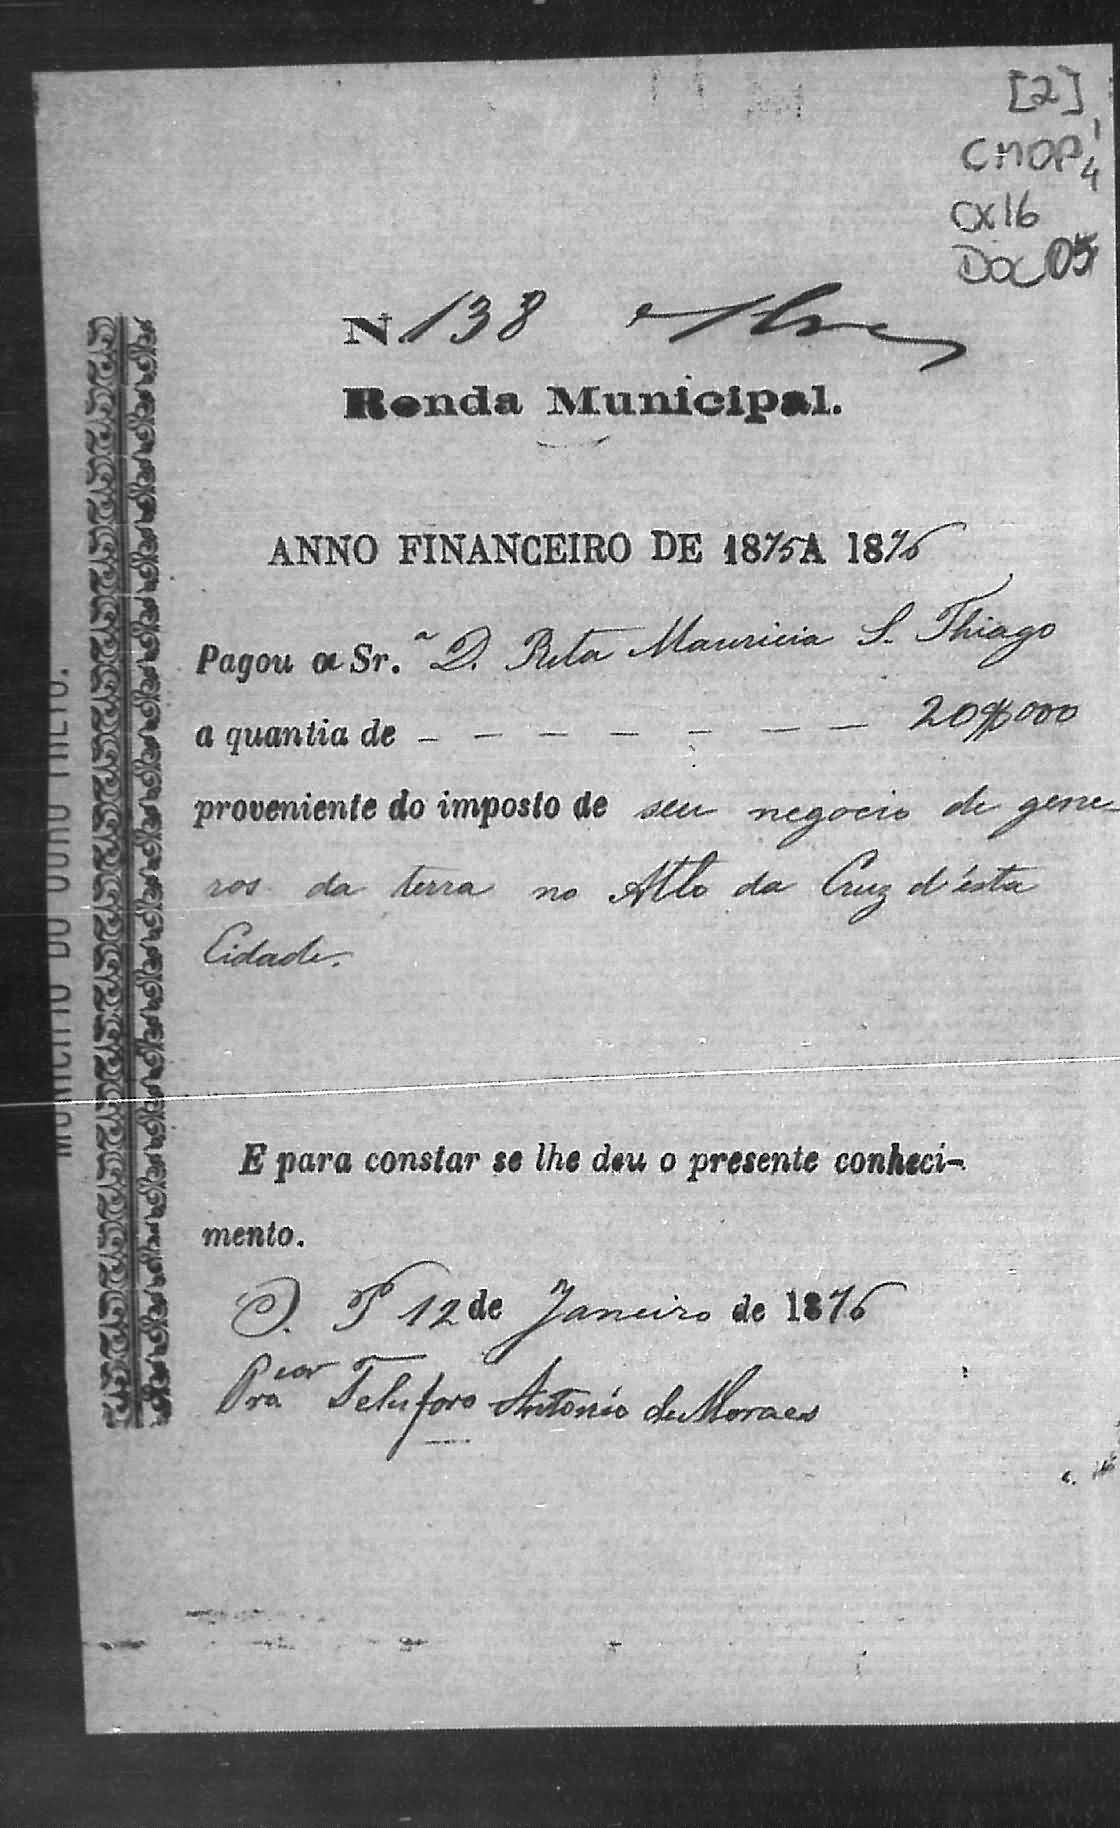 [2]
CMOP 1/4
CX16
DOC 05
N. 138
Renda Municipal.
ANNO FINANCEIRO DE 1875 A 1876
Pagou a Sr.ª D. Rita Mauricia S. Thiago
a quantia de — — — — — — — 20$000
proveniente do imposto de seu negocio de gene-
ros da terra no Alto da Cruz d'ésta
Cidade.
E para constar se lhe deu o presente conheci-
mento.
O. P 12 de Janeiro de 1876
Telesforo Antonio de Moraes
MUNICIPIO DO OURO PRETO.